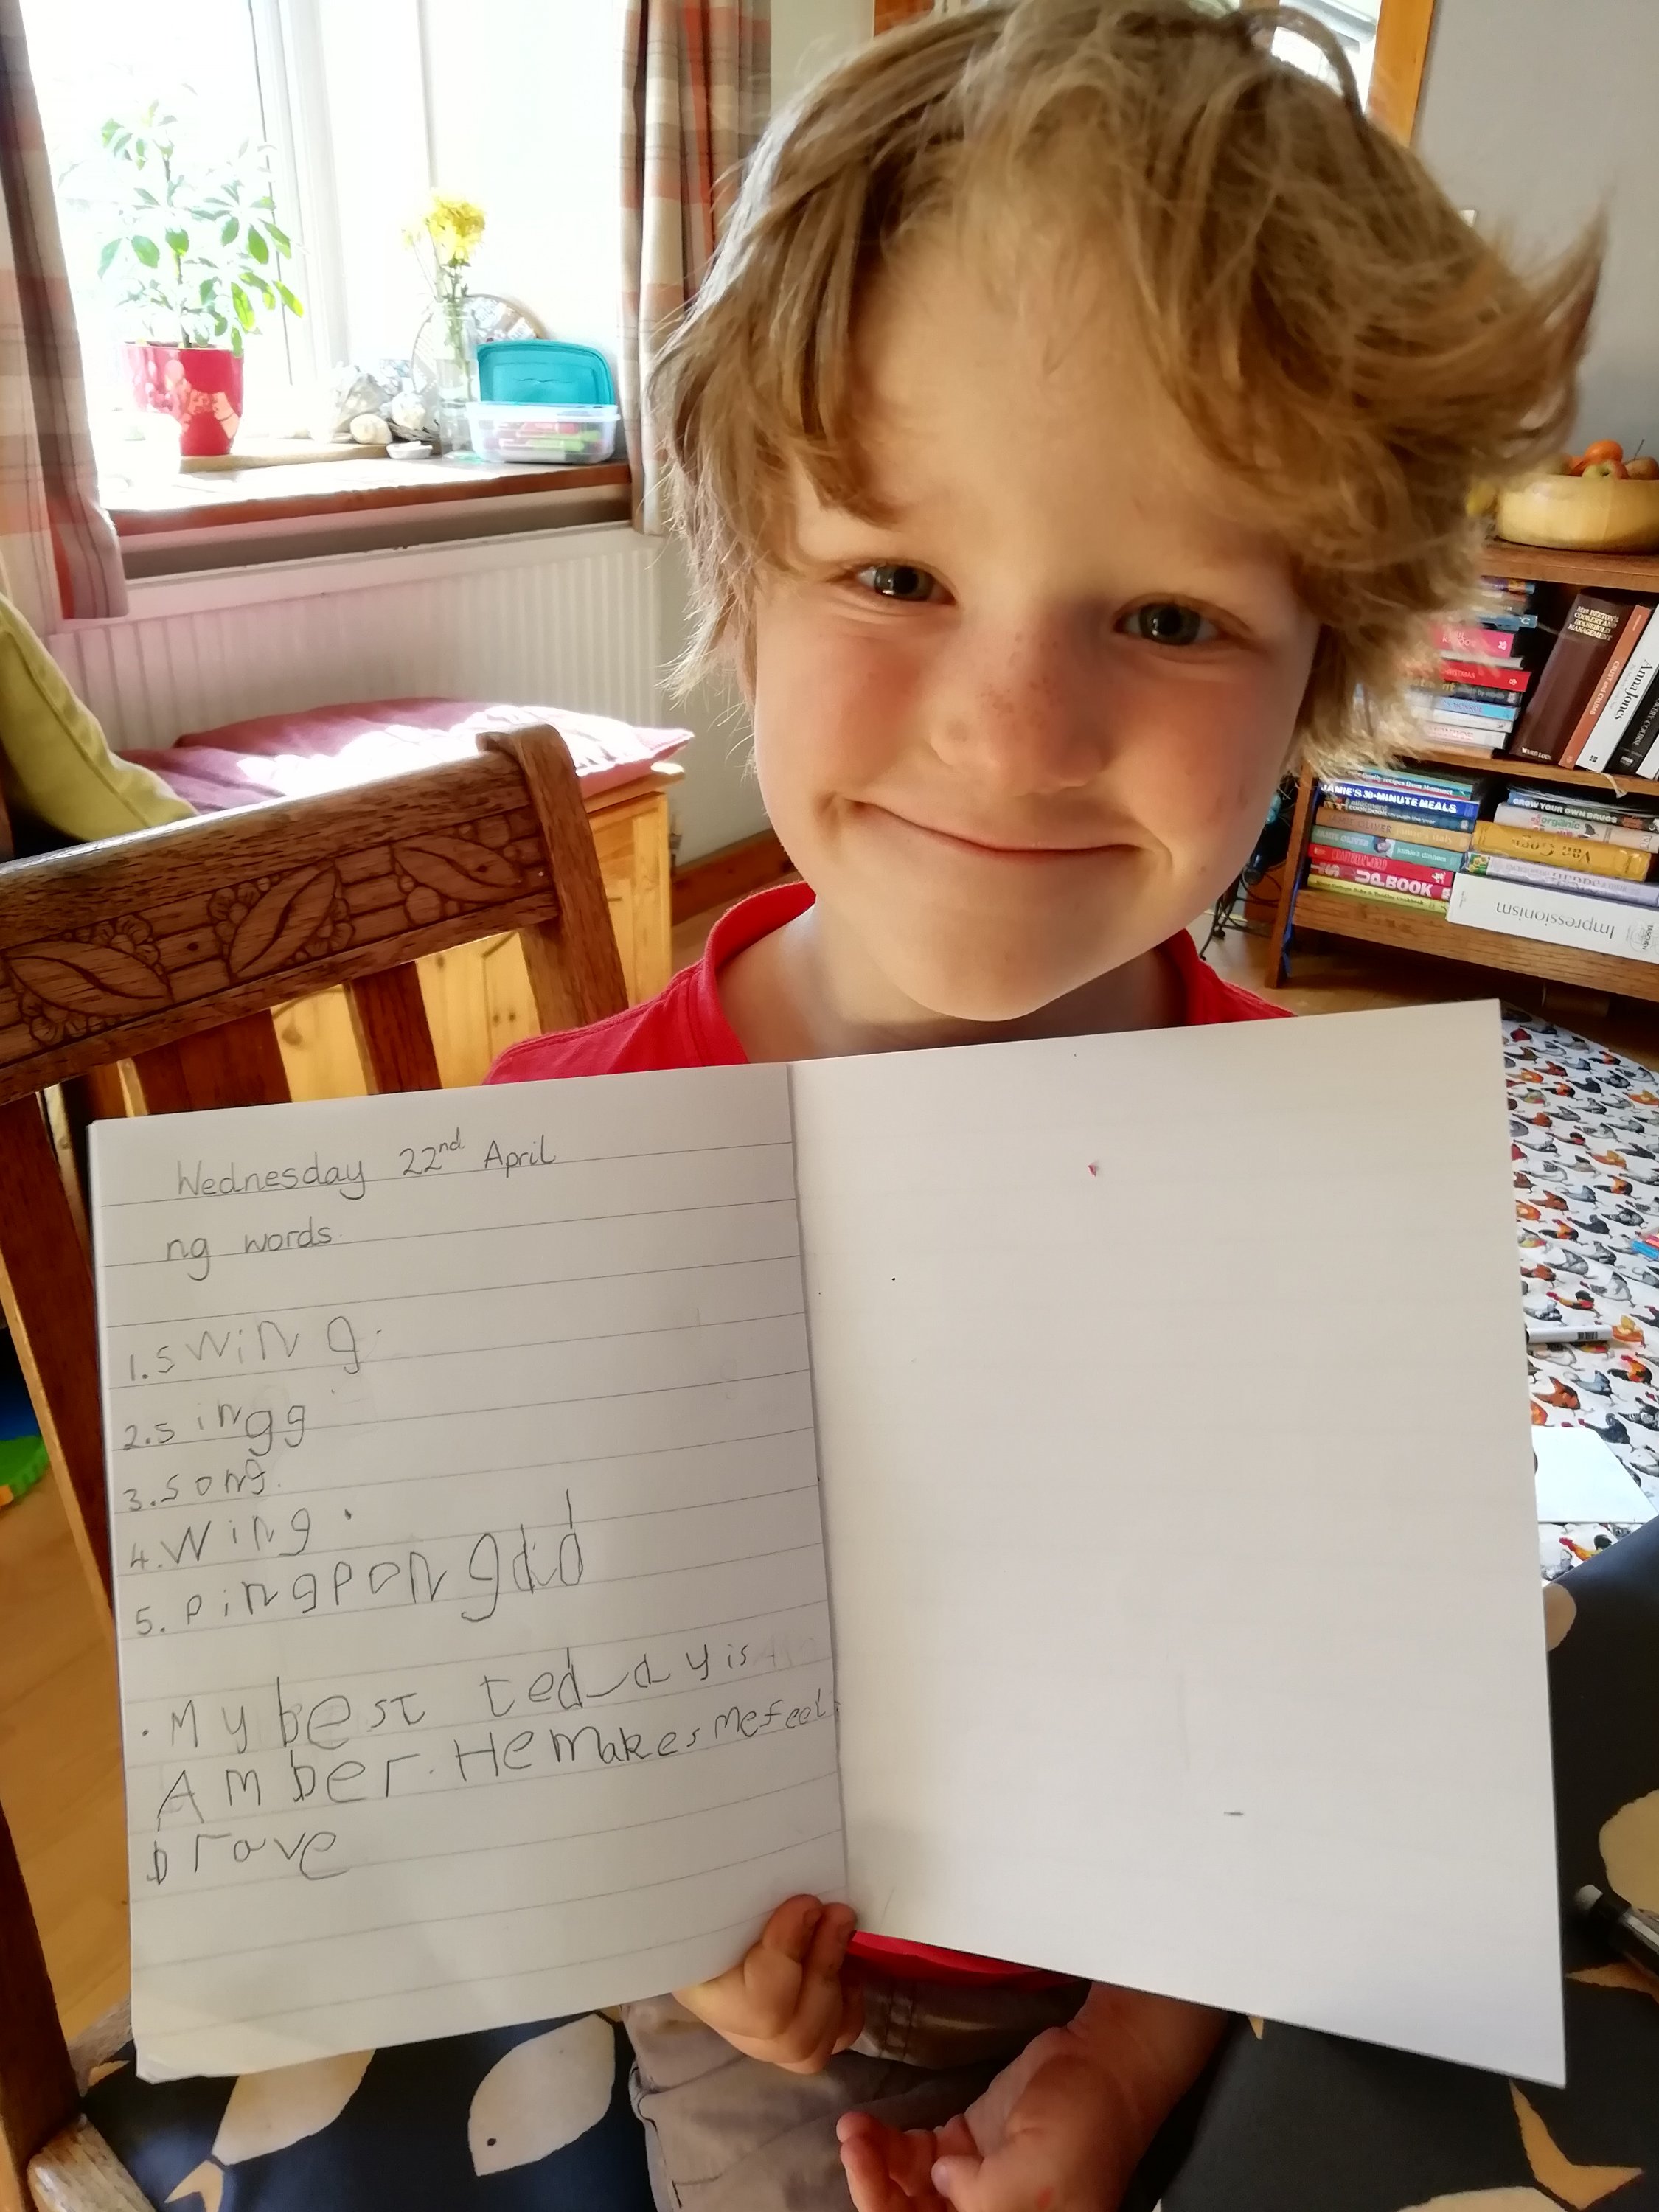 Wednesday 22nd April
ng words
1. swing.
2. singg
3. song.
4. wing.
5. pingpong
. My best ted_ay is
Amber. He makes me feel
brave
MRS BEETON'S COOKERY AND HOUSEHOLD MANAGEMENT
WARD LOCK
Anna Jones
CHRISTMAS
JAMIE'S 30-MINUTE MEALS
JAMIE OLIVER
GROW YOUR OWN DRUGS
organic
Van Gogh
UP BOOK
Impressionism